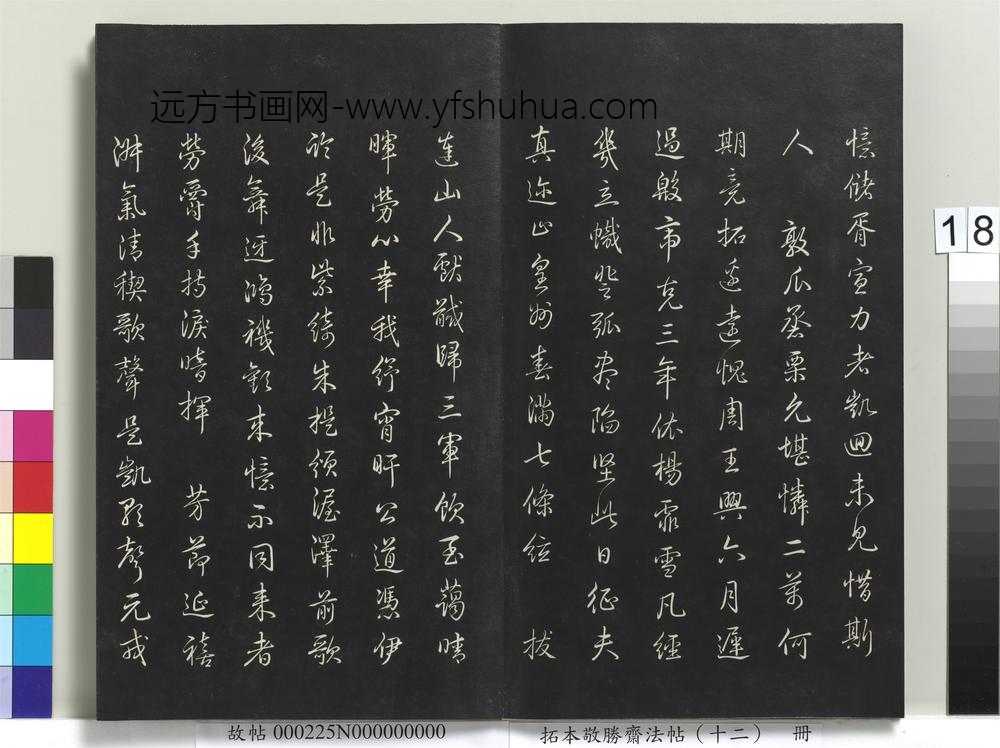 远方书画网-www.yfshuhua.com
憶儲胥宣力者凱迴未見惜斯
人 敦瓜蒸栗允堪憐二萬何
期竟拓邊遠愧周王興六月遲
過殷帝克三年依楊霏雪凡經
幾立幟登弧屢陷堅此日征夫
真迩止皇州春滿七條絃 拔
達山人獻馘歸三軍飲至藹晴
暉勞心幸我紓宵旰公道憑伊
論是非紫綺朱提頒渥澤前歌
後舞迓鴻禨郊來憶不同來者
勞爵手持淚暗揮 芳節延禧
淑氣清稧歌聲是凱歌聲元戎
18
故帖 000225N000000000
拓本敬勝齋法帖（十二） 冊